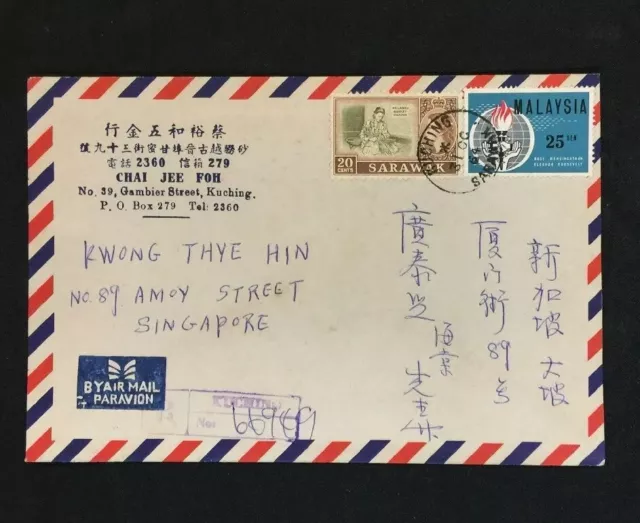 行金五和裕蔡
號九十三街密甘埠晉古越朥砂
電話 2360 信箱 279
CHAI JEE FOH
No. 39, Gambier Street, Kuching.
P. O. Box 279 Tel: 2360
20
CENTS
SARAWAK
MALAYSIA
25 SEN
KUCHING
SARAWAK
KWONG THYE HIN
NO. 89 AMOY STREET
SINGAPORE
新加坡大坡
厦门街89号
廣泰兴
BY AIR MAIL
PAR AVION
No: